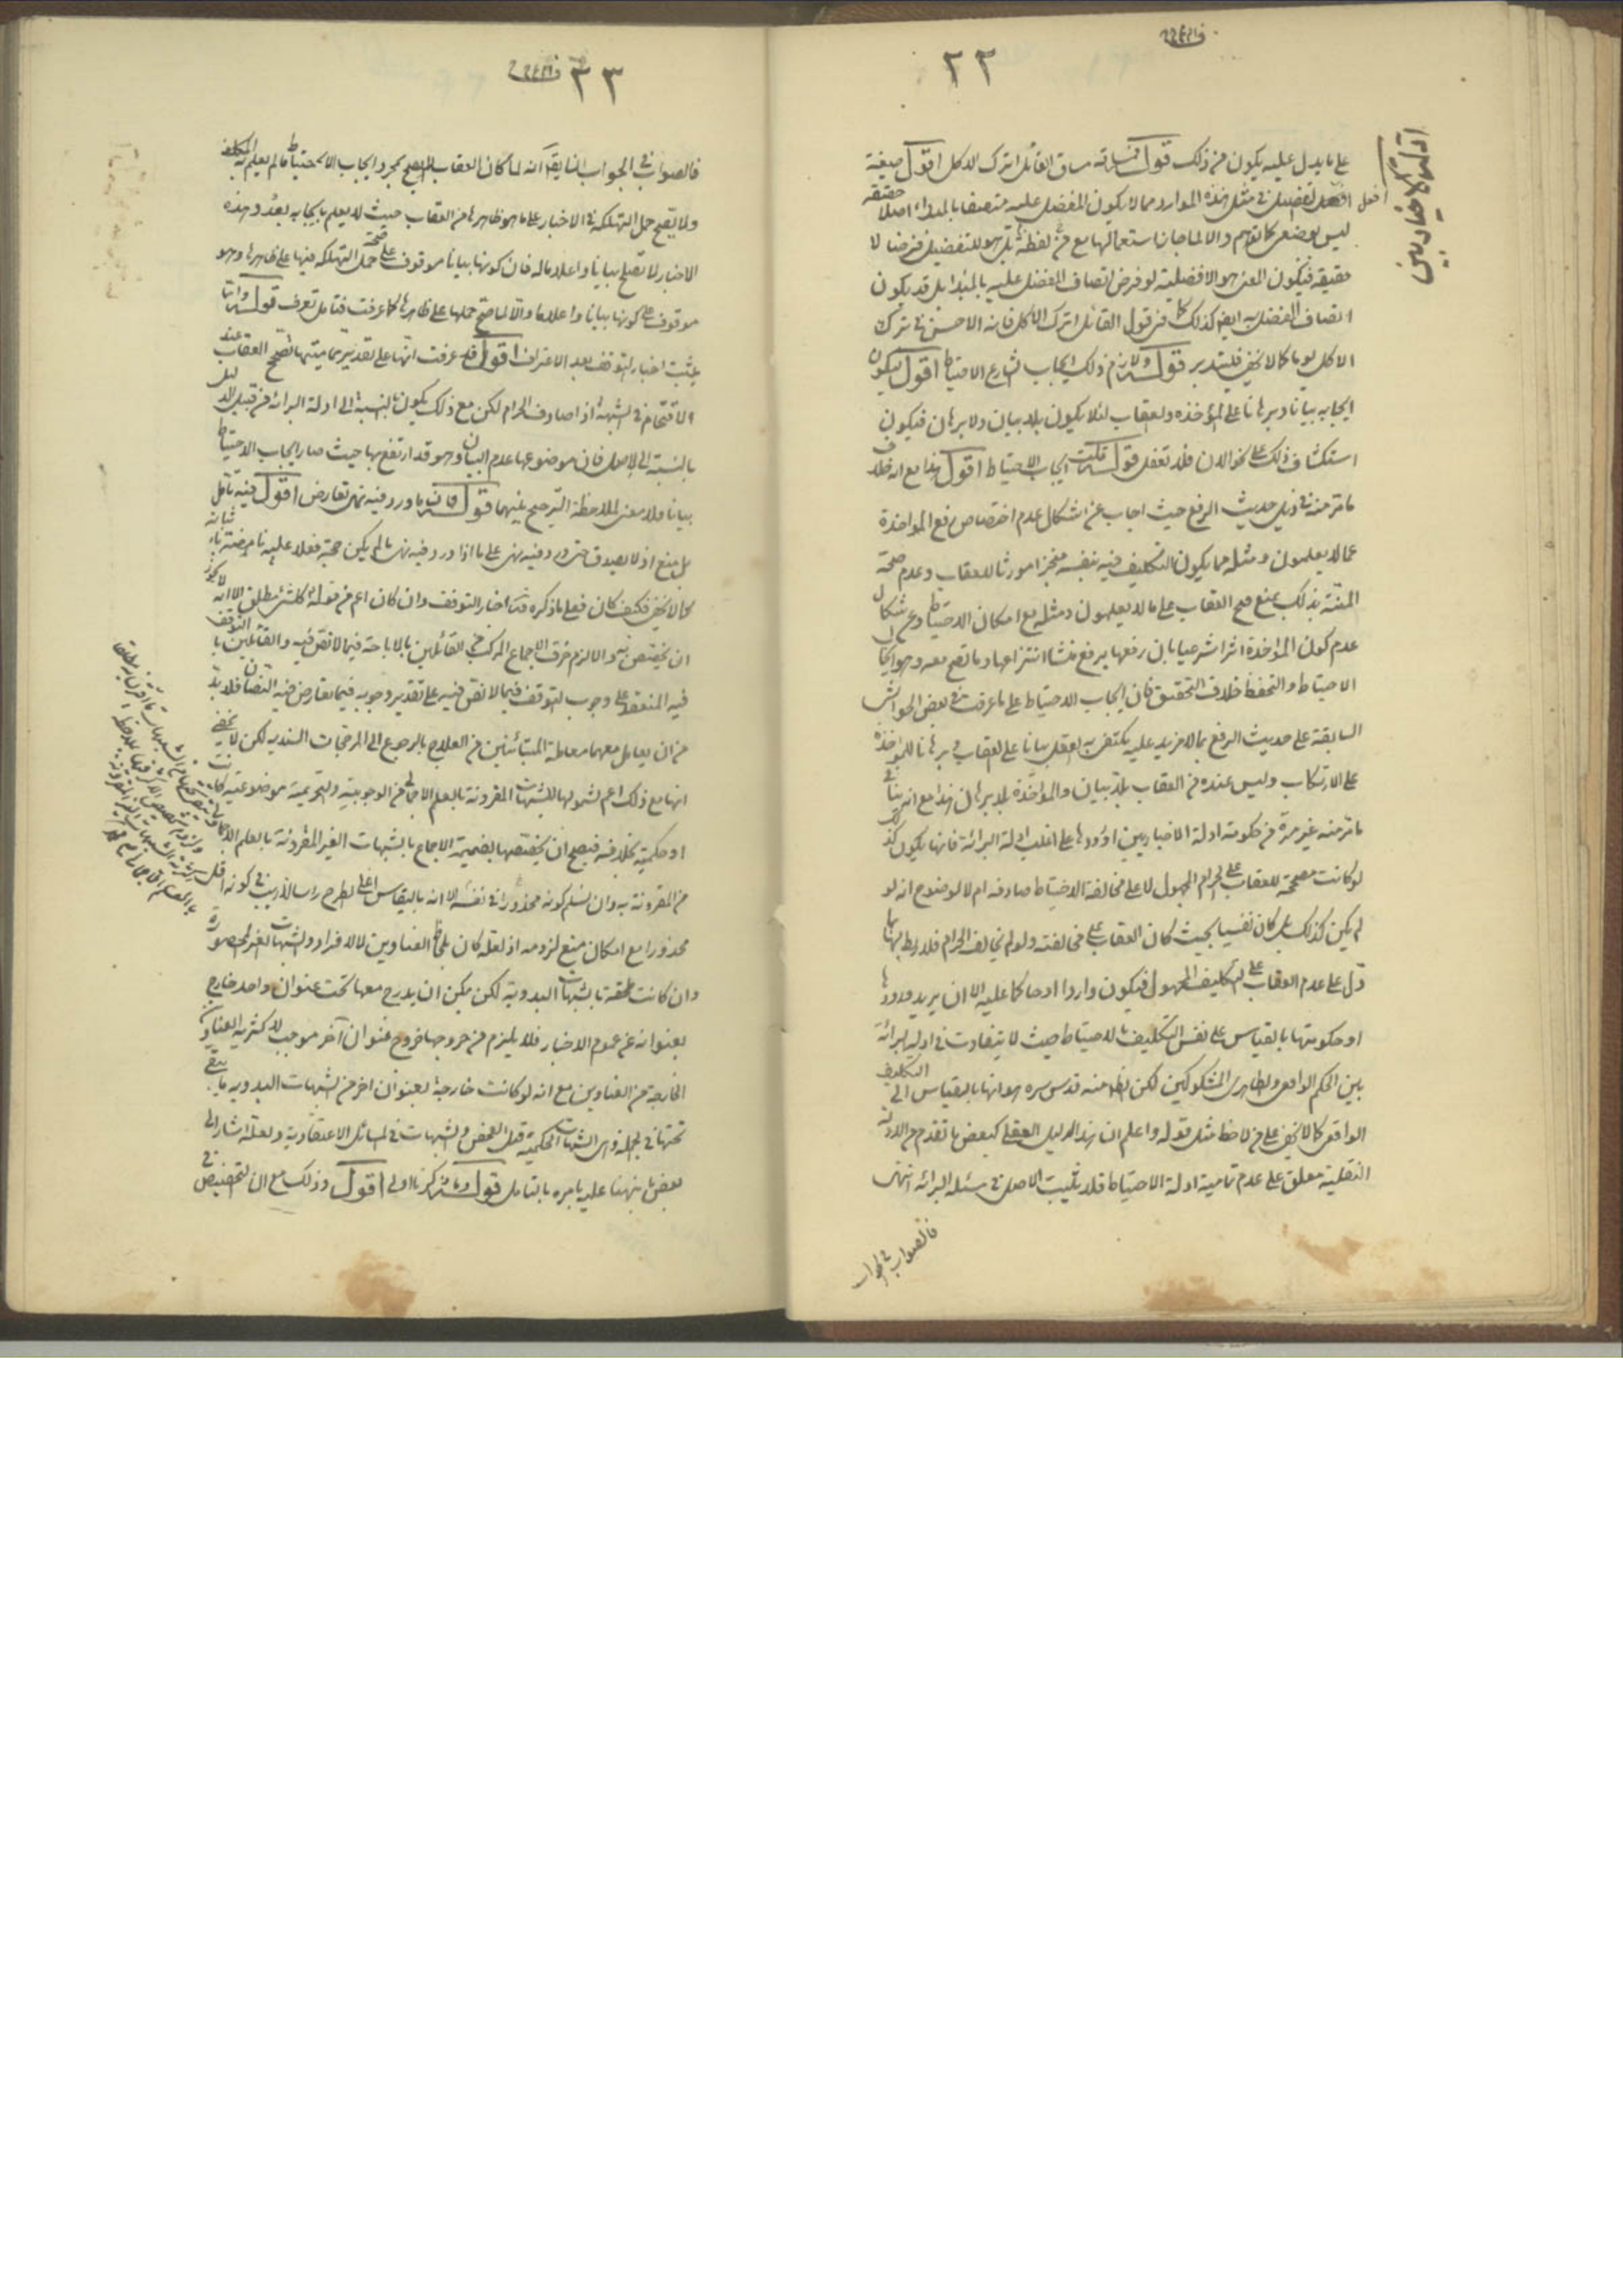 ٢٢
ادلة الاخباريين
على ما يدل عليه يكون من ذلك قوله مساقه مساق القائل اترك الاكل اقول صيغة
افعل التفضيل في مثل هذه الموارد مما لا يكون المفضل عليه متصفا بالمبداء اصلا حقيقة
ليس بوضعى كالوهم والا لما جاز استعمالها مع من لفظة بل هو للتفضيل فرضا لا
حقيقة فيكون المعنى هو الافضلية لو فرض اتصاف المفضل عليه بالمبدا بل قد يكون
اتصاف المفضل به ايضا كذلك كما في قول القائل اترك الاكل فانه الاحسن في ترك
الاكل يوما كما لا يخفى فليتدبر قوله ولازم ذلك ايجاب الشارع الاحتياط اقول ليكون
ايجابه بيانا وبرهانا على المؤاخذة والعقاب لئلا يكون بلا بيان ولا برهان فيكون
استكشاف ذلك على نحو الان فلا تغفل قوله قلت ايجاب الاحتياط اقول هذا مع انه خلاف
ما مر منه في ذيل حديث الرفع حيث اجاب عن اشكال عدم اختصاص رفع المؤاخذة
عما لا يعلمون ومثله مما يكون التكليف فيه بنفسه منجزا مورثا للعقاب وعدم صحة
المنة بذلك بمنع قبح العقاب على ما لا يعلمون ومثله مع امكان الاحتياط وعن اشكال
عدم كون المؤاخذة اثرا شرعيا بان رفعها برفع منشا انتزاعها وما تصح معه وهو ايجاب
الاحتياط والتحفظ خلاف التحقيق فان ايجاب الاحتياط على ما عرفت في بعض الحواشى
السابقة على حديث الرفع بما لا مزيد عليه يكتفى به العقل بيانا على العقاب وبرهانا للمؤاخذة
على الارتكاب وليس عنده من العقاب بلا بيان والمؤاخذة بلا برهان هذا مع انه ينافى
ما مر منه غير مرة من حكومة ادلة الاخباريين او ورودها على اغلب ادلة البرائة فانها يكون كذلك
لو كانت مصححة للعقاب على الحرام المجهول لا على مخالفة الاحتياط صادفه ام لا لوضوح انه لو
لم يكن كذلك بل كان نفسيا بحيث كان العقاب على مخالفته ولو لم يخالف الحرام فلا ربط لها بما
دل على عدم العقاب على التكليف المجهول فيكون واردا او حاكما عليه الا ان يريد ورودها
او حكومتها بالقياس على نفس التكليف بالاحتياط حيث لا يتفاوت في ادلة البرائة
بين الحكم الواقعى والظاهرى المشكوكين لكن الظ منه قدس سره هو انها بالقياس الى التكليف
الواقعى كما لا يخفى على من لاحظ مثل قوله واعلم ان هذا الدليل العقلى كبعض ما تقدم من الادلة
النقلية معلق على عدم تمامية ادلة الاحتياط فلا يثبت الاصل في مسئلة البرائة انتهى
فالصواب في الجواب
٣٣
فالصواب في الجواب ان يقال انه لما كان العقاب لا يصح بمجرد ايجاب الاحتياط ما لم يعلم به المكلف
ولا يصح حمل التهلكة في الاخبار على ما هو ظاهرها من العقاب حيث لا يعلم بايجابه بعد وهذه
الاخبار لا تصلح بيانا واعلاما له فان كونها بيانا موقوف على صحة حمل التهلكة فيها على ظاهرها وهو
موقوف على كونها بيانا واعلاما والا لما صح حملها على ظاهرها كما عرفت فتامل تعرف قوله وانما
يثبت اخبار التوقف بعد الاعتراف اقول قد عرفت انها على تقدير تماميتها تصحح العقاب عند
الاقتحام في الشبهة اذا صادف الحرام لكن مع ذلك يكون بالنسبة الى ادلة البرائة من قبيل الدليل
بالنسبة الى الاصل فان موضوعها عدم البيان وهو قد ارتفع بها حيث صار ايجاب الاحتياط
بيانا فلا معنى لملاحظة الترجيح بينهما قوله فان ما ورد فيه نهى تعارض اقول فيه تامل
بل منع اذ لا يصدق حتى ورد فيه نهى على ما اذا ورد فيه نهى ما لم يكن حجة فعلا عليه
كما لا يخفى فكيف كان فعلى ما ذكره قده اخبار التوقف وان كان اعم من قوله كل شئ مطلق الا انه لا يجوز
ان يخصص به والا لزم خرق الاجماع المركب بين القائلين بالاباحة فيما لا نص فيه والقائلين بالتوقف
فيه المنعقد على وجوب التوقف فيما لا نص فيه على تقدير وجوبه فيما تعارض فيه النصان فلا بد
من ان يعامل معهما معاملة المتبائنين من العلاج بالرجوع الى المرجحات السندية لكن لا يخفى
انها مع ذلك اعم لشمولها للشبهات المقرونة بالعلم الاجمالى من الوجوبية والتحريمية موضوعية كانت
او حكمية بخلافه فيصح ان يخصصها بضميمة الاجماع بالشبهات الغير المقرونة بالعلم الاجمالى
من المقرونة به وان نسلم كونه محذورا في نفسه الا انه بالقياس الى الطرح راسا لا ريب في كونه اقل
محذورا مع امكان منع لزومه اذ لعله كان بلحاظ العناوين لا الافراد والشبهات الغير المحصورة
وان كانت ملحقة بالشبهات البدوية لكن يمكن ان يدرج معها تحت عنوان واحد خارج
بعنوانه عن عموم الاخبار فلا يلزم من خروجها خروج عنوان آخر موجب لاكثرية العناوين
الخارجة من العناوين مع انه لو كانت خارجة بعنوان اخر من الشبهات البدوية ما يبقى
تحتها في الجملة وهى الشبهات الحكمية قبل الفحص والشبهات في المسائل الاعتقادية ولعله اشار الى
بعض ما نبهنا عليه بامره بالتامل قوله وما ذكرنا اولى اقول وذلك مع ان التخصيص في